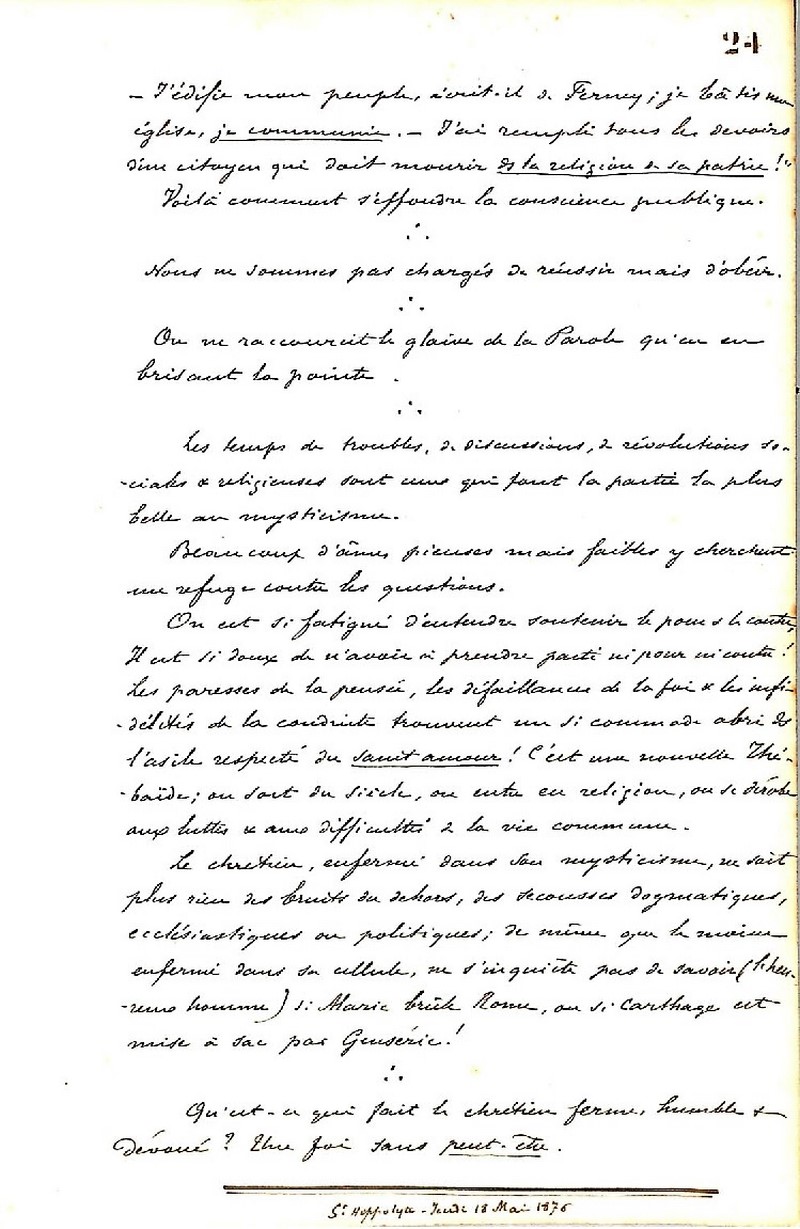 24
— J'édifie mon peuple, écrit-il de Ferney; je bâtis mon
église, je communie. — J'ai rempli tous les devoirs
d'un citoyen qui doit mourir ds la religion de sa patrie!"
Voilà comment s'effondre la conscience publique.
∴
Nous ne sommes pas chargés de réussir mais d'obéir.
∴
On ne raccourcit le glaive de la Parole qu'en en
brisant la pointe.
∴
Les temps de troubles, de discussions, de révolutions so-
-ciales & religieuses sont ceux qui font la partie la plus
belle au mysticisme.
Beaucoup d'âmes pieuses mais faibles y cherchent
un refuge contre les questions.
On est si fatigué d'entendre soutenir le pour & le contre,
Il est si doux de n'avoir à prendre parti ni pour ni contre!
Les paresses de la pensée, les défaillances de la foi & les infi-
-délités de la conduite trouvent un si commode abri ds
l'asile respecté du saint amour! C'est une nouvelle Thé-
-baïde; on sort du siècle, on entre en religion, on se dérobe
aux luttes & aux difficultés de la vie commune.
Le chrétien, enfermé dans son mysticisme, ne sait
plus rien des bruits du dehors, des secousses dogmatiques,
ecclésiastiques ou politiques; de même que le moine
enfermé dans sa cellule, ne s'inquiète pas de savoir (l'heu-
-reux homme) si Alaric brûle Rome, ou si Carthage est
mise à sac par Genséric!
∴
Qu'est-ce qui fait le chrétien ferme, humble &
dévoué? Une foi sans peut-être.
St Hippolyte - Jeudi 18 Mai 1876